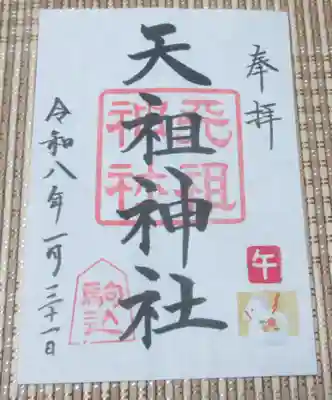 奉拝
天祖神社
天祖
神社
午
令和八年一月三十一日
駒込